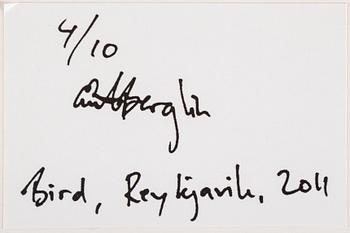 4/10
Bird, Reykjavik, 2011